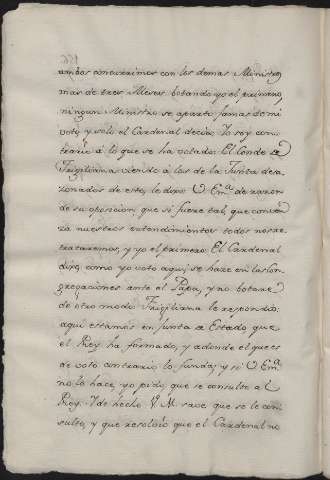 ambos concurrimos con los demas Ministros
mas de tres Meses botando yo el primero,
ningun Ministro se aparto jamas de mi
voto, y solo el Cardenal decia: Yo soy con-
trario à lo que se ha votado. El Conde de
Frigiliana, viendo à los de la Junta desa-
zonados de esto, le dixo: V. Em.ª de razon
de su oposicion, que si fuere tal, que conven-
za nuestros entendimientos todos nos re-
trataremos, y yo el primero. El Cardenal
dixo: como yo voto aqui, se hace en las Con-
gregaciones ante el Papa, y no botare
de otro modo. Frigiliana le respondio:
aqui estamos en Junta de Estado, que
el Rey ha formado, y adonde el que es
de voto contrario, lo funda, y si V. Em.ª
no lo hace, yo pido, que se consulte al
Rey. Y de hecho V. M. save que se le con-
sulto, y que resolbio que el Cardenal no